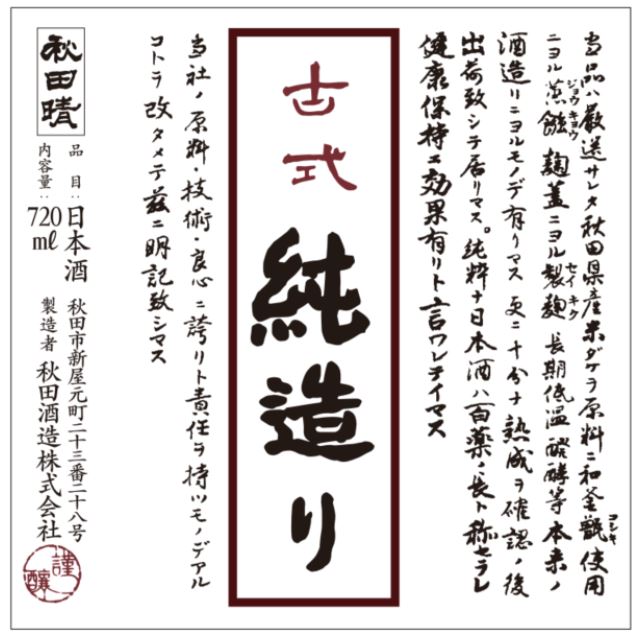 当品ハ厳选サレタ秋田県産米ダケヲ原料ニ和釜甑使用
コシキ
ニヨル蒸餾麹蓋ニヨル製麹長期低温醗酵等本来ノ
ジョウキョウ
セイキク
酒造リニヨルモノデ有リマス更ニ十分ナ熟成ヲ確認ノ後
出荷致シテ居リマス。純粋ナ日本酒ハ百薬ノ長ト称セラレ
健康保持エ効果有リト言ワレテイマス
古式
純造り
当社ノ原料・技術・良心ニ誇リト責任ヲ持ツモノデアル
コトヲ改タメテ茲ニ明記致シマス
秋田晴
品 目:日本酒
内容量:720ml
秋田市新屋元町二十三番二十八号
製造者 秋田酒造株式会社
謹醸